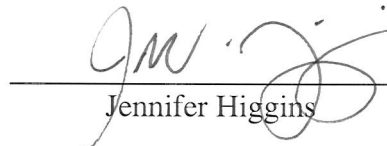 Jennifer Higgins